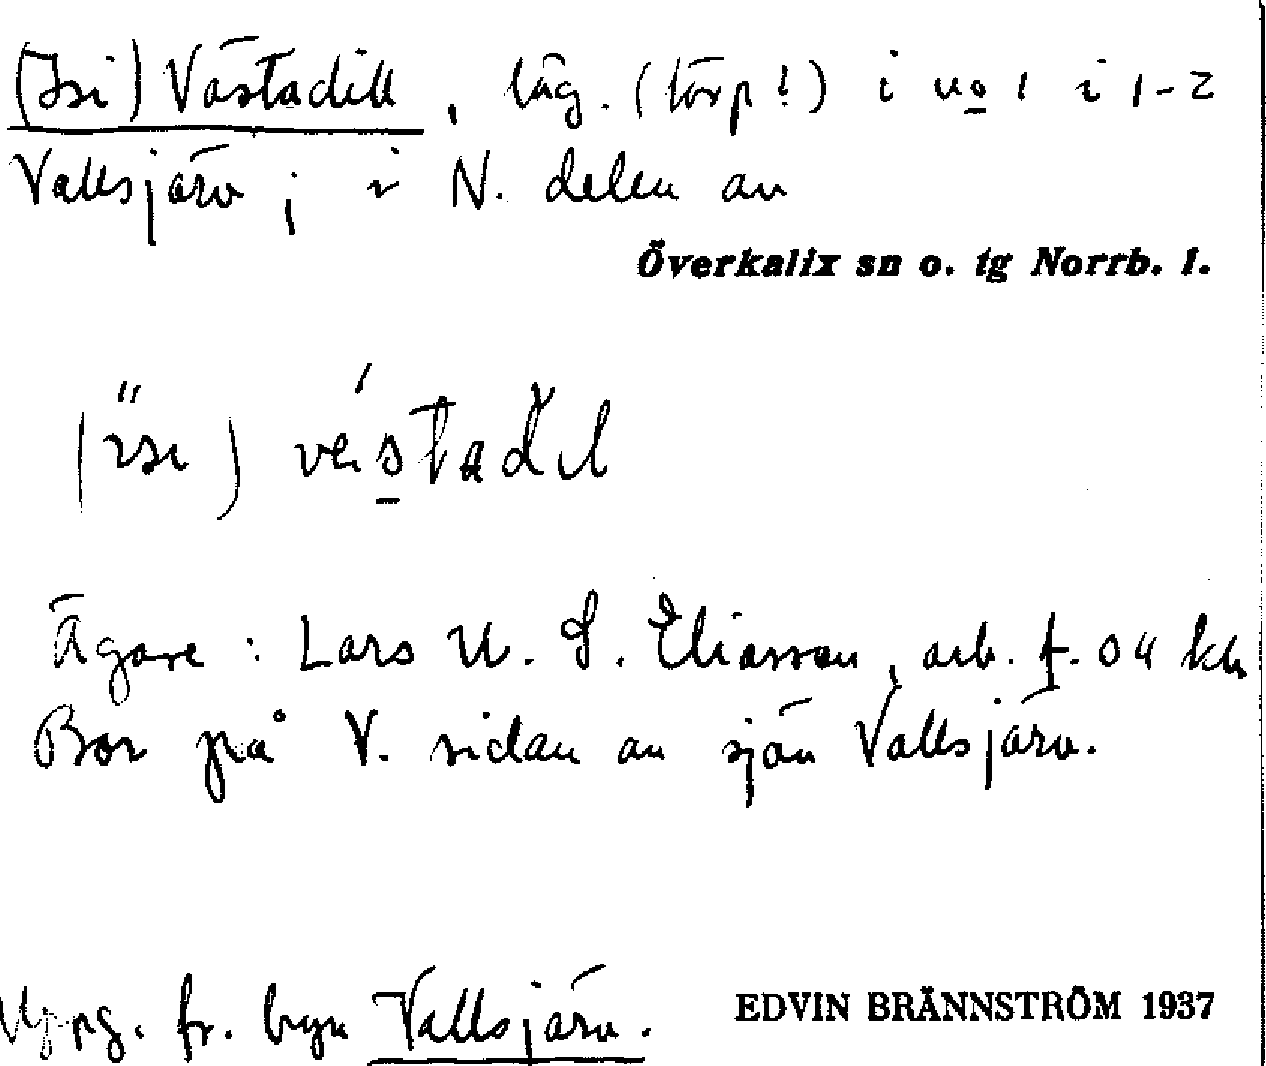 (Isi) Västadill, läg. (torp!) i no 1 i 1-2
Vallsjärv; i N. delen av
Överkalix sn o. tg Norrb. l.
Ägare: Lars U. S. Eliasson, arb. f. 04
Bor på V. sidan av sjön Vallsjärv.
Uppg. fr. byn Vallsjärv.
EDVIN BRÄNNSTRÖM 1937